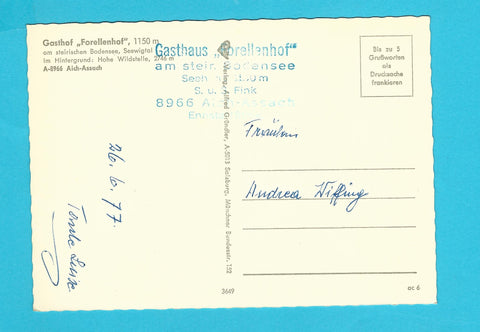 Gasthof „Forellenhof", 1150 m
am steirischen Bodensee, Seewigtal
im Hintergrund: Hohe Wildstelle, 2746 m
A-8966 Aich-Assach
Gasthaus „Forellenhof"
am steir. Bodensee
S. u. Fink
8966 Aich-Assach
Bis zu 5
Grußworten
als
Drucksache
frankieren
Verlag Alfred Gründler, A-5013 Salzburg, Münchner Bundesstr. 152
Fräulein
Andrea Wiffing
26. 6. 77.
Tante Luise.
3649
ac 6